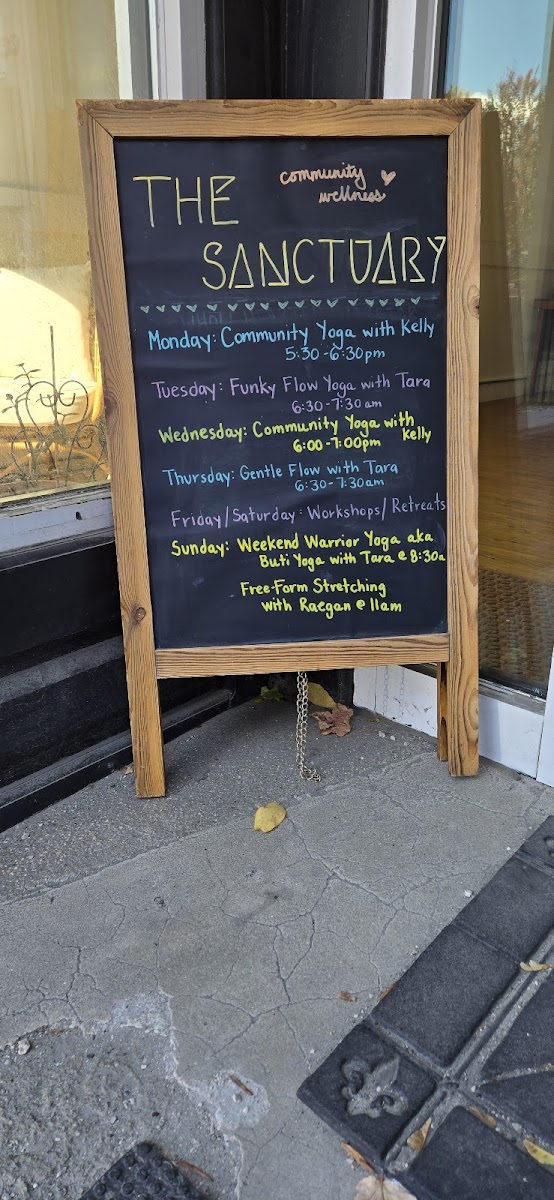 THE
community
wellness
SANCTUARY
Monday: Community Yoga with Kelly
5:30-6:30pm
Tuesday: Funky Flow Yoga with Tara
6:30-7:30am
Wednesday: Community Yoga with
6:00-7:00pm Kelly
Thursday: Gentle Flow with Tara
6:30-7:30am
Friday/Saturday: Workshops/Retreats
Sunday: Weekend Warrior Yoga aka
Buti Yoga with Tara @ 8:30a
Free-Form Stretching
with Raegan @ 11am